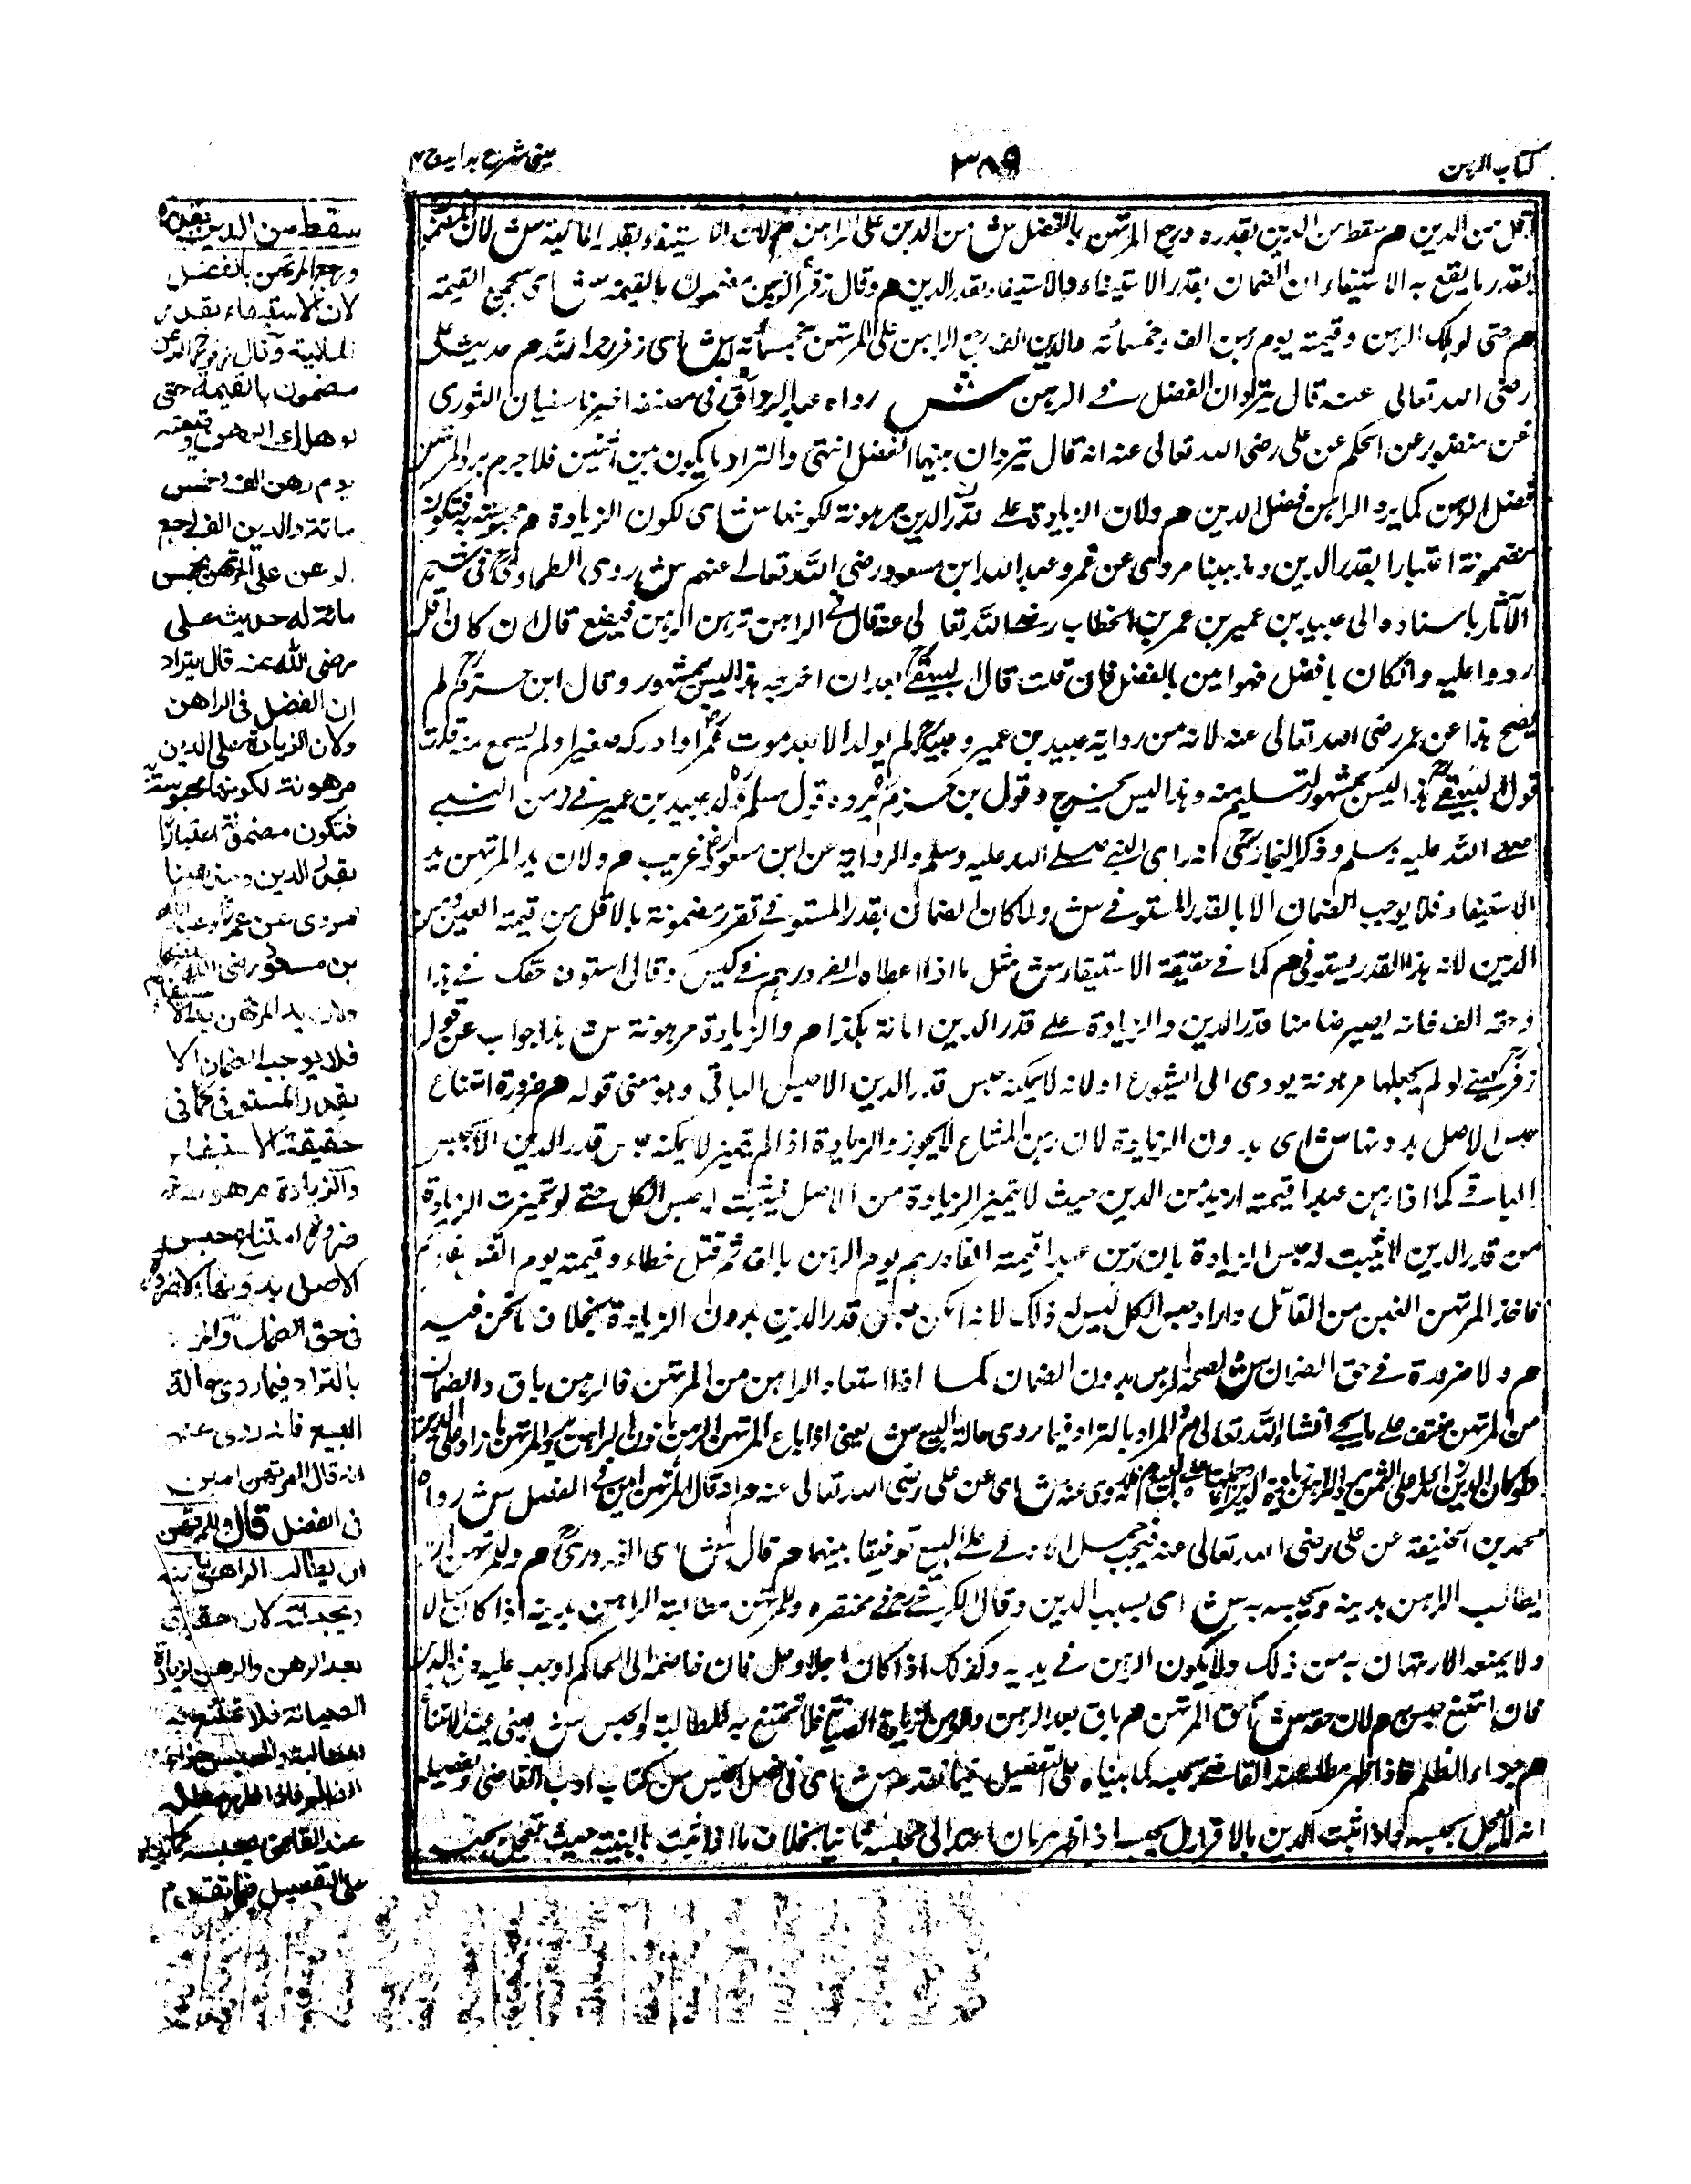 كتاب الرهن
٣٨٩
عينى شرح هدايه ج ٤
اقل من الدين هم سقط من الدين بقدره ورجع المرتهن بالفضل ش من الدين على الراهن هم لان الاستيفاء بقدر المالية ش لان المضمون
بقدر ما يقع به الاستيفاء ان الضمان بقدر الاستيفاء والاستيفاء بقدر الدين هم وقال زفر الرهن مضمون بالقيمة ش اى بجميع القيمة
هم حتى لو هلك الرهن وقيمته يوم رهن الف وخمسمائه والدين الف رجع الراهن على المرتهن بخمسمائة له ش اى زفر رحمه الله هم حديث على
رضى الله تعالى عنه قال يترادان الفضل فى الرهن ش رواه عبد الرزاق فى مصنفه اخبرنا سفيان الثورى
عن منصور عن الحكم عن على رضى الله تعالى عنه انه قال يترادان بينهما الفضل انتهى والتراد يكون بين اثنين فلا جرم يرد المرتهن
فضل الرهن كما يرد الراهن فضل الدين هم ولان الزيادة على قدر الدين مرهونة لكونها ش اى لكون الزيادة هم محبوسة به فتكون
مضمونة اعتبارا بقدر الدين ومذهبنا مروى عن عمر وعبد الله ابن مسعود رضى الله تعالى عنهم ش روى الطحاوى فى شرح
الآثار باسناده الى عبيد بن عمير بن عمر بن الخطاب رضى الله تعالى عنه قال فى الراهن يرهن الرهن فيضع قال ان كان اقل
ردوا عليه وان كان بافضل فهو امين بالفضل فان قلت قال البيهقى بعد ان اخرجه هذا ليس بمشهور وقال ابن حزم لم
يصح هذا عن عمر رضى الله تعالى عنه لانه من رواية عبيد بن عمير وعبيد لم يولد الا بعد موت عمر او ادركه صغيرا ولم يسمع منه قلت
قول البيهقى هذا ليس بمشهور تسليم منه وهذا ليس بجرح وقول بن حزم يرده قول مسلم ولد عبيد بن عمير فى زمن النبى
صلى الله عليه وسلم وذكر البخارى انه راى النبى صلى الله عليه وسلم والرواية عن ابن مسعود غريب هم ولان يد المرتهن يد
الاستيفاء فلا يوجب الضمان الا بالقدر المستوفى ش ولما كان الضمان بقدر المستوفى تقرر مضمونة بالاقل من قيمة العين ومن
الدين لانه بهذا القدر يستوفى هم كما فى حقيقة الاستيفاء ش مثل ما اذا اعطاه الف درهم فى كيس وقال استوف حقك فى هذا
وحقه الف فانه يصير ضامنا قدر الدين والزيادة على قدر الدين امانة هكذا هم والزيادة مرهونة ش هذا جواب عن قول
زفر يعنى لو لم يجعلها مرهونة يودى الى الشيوع او لانه لا يمكنه حبس قدر الدين الا بحبس الباقى وهو معنى قوله هم ضرورة امتناع
حبس الاصل بدونها ش اى بدون الزيادة لان رهن المشاع لا يجوز والزيادة اذا لم يتميز لا يمكنه حبس قدر الدين الا بحبس
الباقى كما اذا رهن عبدا قيمته ازيد من الدين حيث لا يتميز الزيادة من الاصل فيثبت له حبس الكل حتى لو تميزت الزيادة
من قدر الدين لا يثبت له حبس الزيادة بان رهن عبدا قيمته الفا درهم يوم الرهن بالف ثم قتل خطاء وقيمته يوم القتل
فاخذ المرتهن الفين من القاتل واراد حبس الكل ليس له ذلك لانه امكن حبس قدر الدين بدون الزيادة بخلاف ما نحن فيه
هم ولا ضرورة فى حق الضمان ش لصحة الحبس بدون الضمان كما اذا استعاد الراهن من المرتهن فالرهن باق والضمان
من المرتهن منتف على ما يجئ انشاء الله تعالى هم والمراد بالتراد فيما روى حالة البيع ش يعنى اذا باع المرتهن الرهن باذن الراهن يرد المرتهن ما زاد على الدين
ولو كان الدين زائدا على الثمن يرد الراهن زيادة الدين هم فانه روى عنه ش اى عن على رضى الله تعالى عنه هم انه قال المرتهن امين فى الفضل ش رواه
محمد بن الحنفية عن على رضى الله تعالى عنه فيجب حمل الاول على البيع توفيقا بينهما هم قال ش اى القدورى هم وللمرتهن ان
يطالب الراهن بدينه ويحبسه به ش اى بسبب الدين وقال الكرخى فى مختصره وللمرتهن مطالبة الراهن بدينه اذا كان حالا
ولا يمنعه الارتهان به من ذلك ولا يكون الرهن فى يديه وكذلك اذا كان اجلا وحل فان خاصمه الى الحاكم اوجب عليه وفى الدين
فان امتنع حبس هم لان حقه ش اى حق المرتهن هم باق بعد الرهن والرهن لزيادة الصيانة فلا تمتنع به المطالبة والحبس ش يعنى عند الامتناع
هم جزاء الظلم فاذا ظهر مطله عند القاضى يحبسه كما بيناه على التفصيل فيما تقدم ش اى فى فصل الحبس من كتاب ادب القاضى وتفصيله
انه لا يعجل بحبسه اذا ثبت الدين بالاقرار بل يحبسه اذا ظهر بان اعيد الى مجلسه ثانيا بخلاف ما اذا ثبت بالبينة حيث يعجل بحبسه
سقط من الدين بقدره
ورجع المرتهن بالفضل
لان الاستيفاء بقدر
المالية وقال زفر الرهن
مضمون بالقيمة حتى
لو هلك الرهن وقيمته
يوم رهن الف وخمس
مائة والدين الف رجع
الراهن على المرتهن بخمس
مائة له حديث على
رضى الله عنه قال يتراد
ان الفضل فى الراهن
ولان الزيادة على الدين
مرهونة لكونها محبوسة به
فتكون مضمونة اعتبارا
بقدر الدين ومذهبنا
مروى عن عمر وعبد الله
بن مسعود رضى الله عنهما
ولان يد المرتهن يد الاستيفاء
فلا يوجب الضمان الا
بقدر المستوفى كما فى
حقيقة الاستيفاء
والزيادة مرهونة به
ضرورة امتناع حبس
الاصل بدونها ولا ضرورة
فى حق الضمان والمراد
بالتراد فيما روى حالة
البيع فانه روى عنه
انه قال المرتهن امين
فى الفضل قال وللمرتهن
ان يطالب الراهن بدينه
ويحبسه به لان حقه باق
بعد الرهن والرهن لزيادة
الصيانة فلا تمتنع به
المطالبة والحبس جزاء
الظلم فاذا ظهر مطله
عند القاضى يحبسه كما بيناه
على التفصيل فيما تقدم